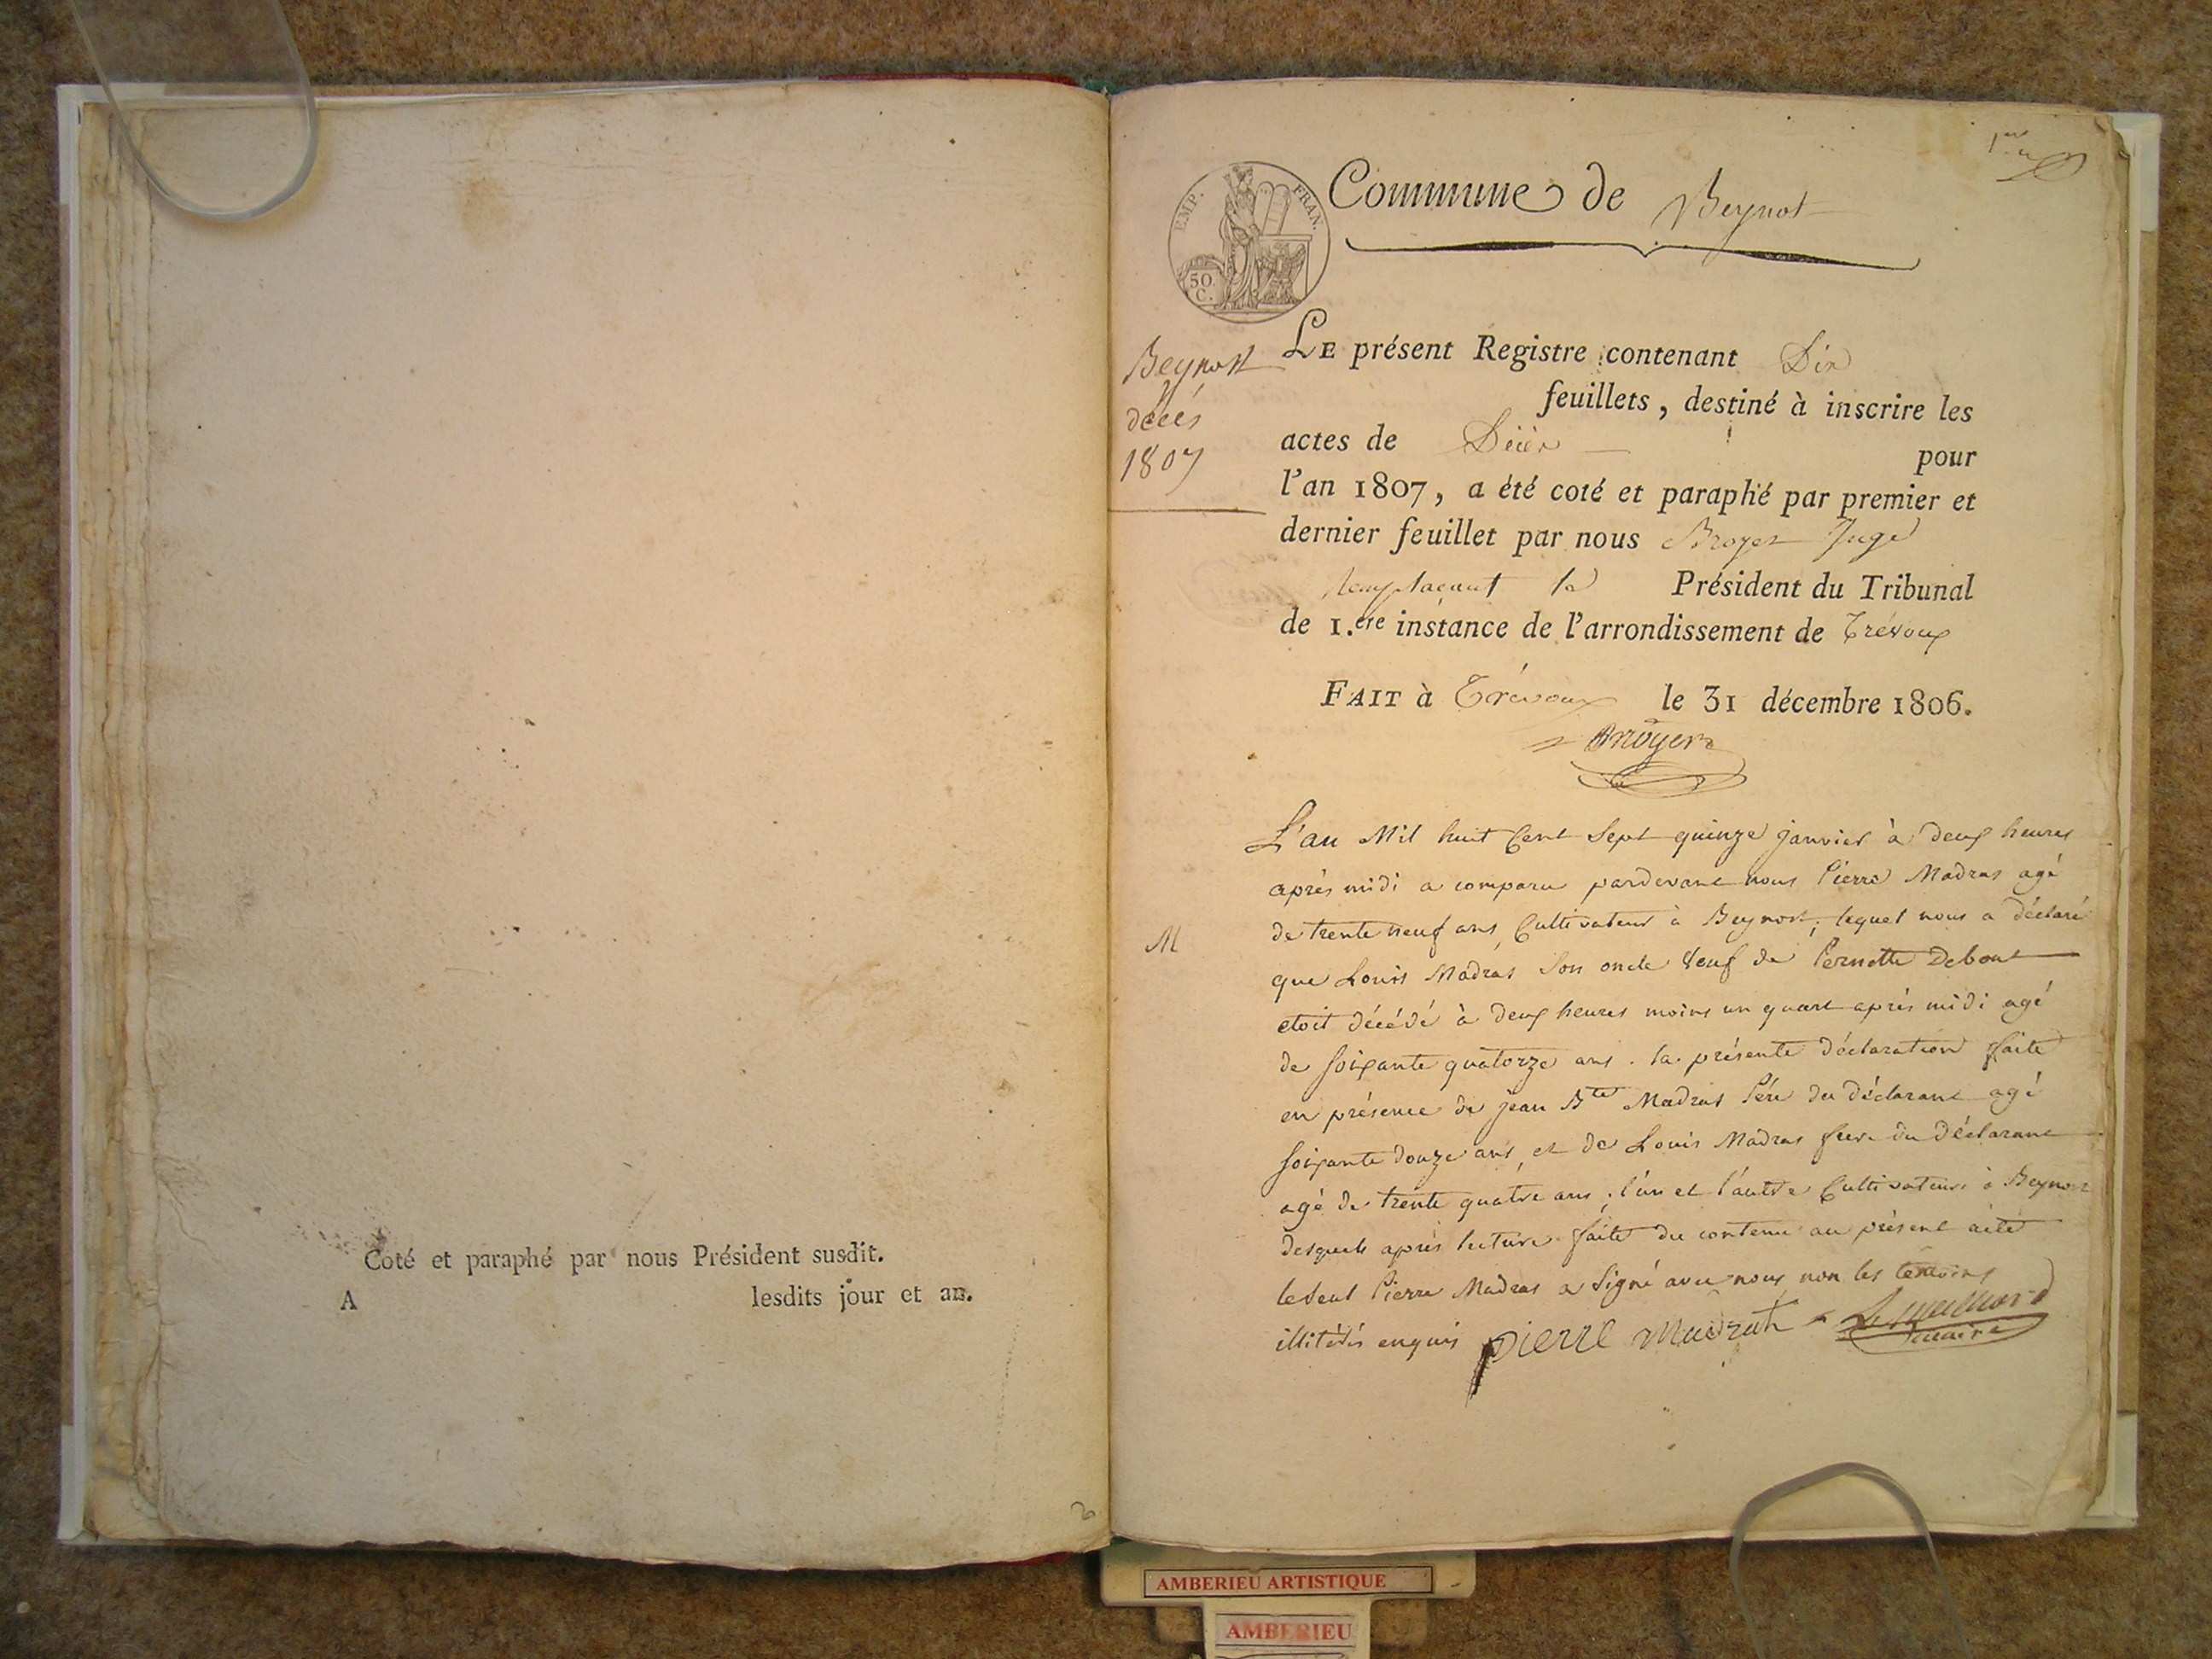 Coté et paraphé par nous Président susdit.
A lesdits jour et an.
1er
EMP. FRAN.
50.
C.
Commune de Beynost
Beynost
décès
1807
LE présent Registre contenant Dix
feuillets, destiné à inscrire les
actes de Décès pour
l'an 1807, a été coté et paraphé par premier et
dernier feuillet par nous Broyer Juge
Remplaçant le Président du Tribunal
de 1.ere instance de l'arrondissement de Trévoux
FAIT à Trévoux le 31 décembre 1806.
Broyer
M
L'an Mil huit Cent Sept quinze janvier à deux heures
après midi a comparu pardevant nous Pierre Madras agé
de trente neuf ans, Cultivateur à Beynost; lequel nous a déclaré
que Louis Madras son oncle veuf de Pernette Debout
etoit décédé à deux heures moins un quart après midi agé
de soixante quatorze ans. la présente déclaration faite
en présence de jean Bte Madras Pére du déclarant agé
soixante douze ans, et de Louis Madras frere du déclarant
agé de trente quatre ans; l'un et l'autre Cultivateurs à Beynost
desquels après lecture faite du contenu au présent acte
le seul Pierre Madras a Signé avec nous non les temoins
illitérés enquis pierre Madrath
maire
AMBERIEU ARTISTIQUE
AMBERIEU